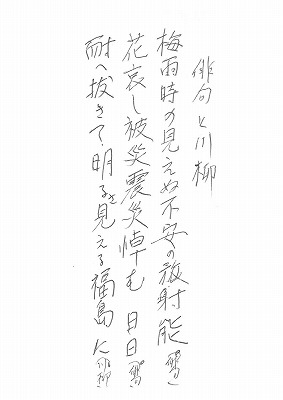 俳句と川柳
梅雨時の見えぬ不安の放射能
花哀し被災震災悼む日日
耐へ抜きて明るさ見える福島に(川柳)